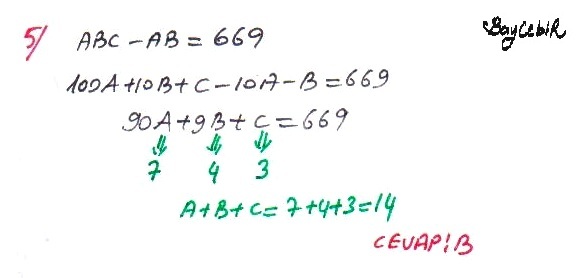 5/ ABC - AB = 669
BayCebiR
100A + 10B + C - 10A - B = 669
90A + 9B + C = 669
⇓ ⇓ ⇓
7 4 3
A + B + C = 7 + 4 + 3 = 14
CEVAP: B